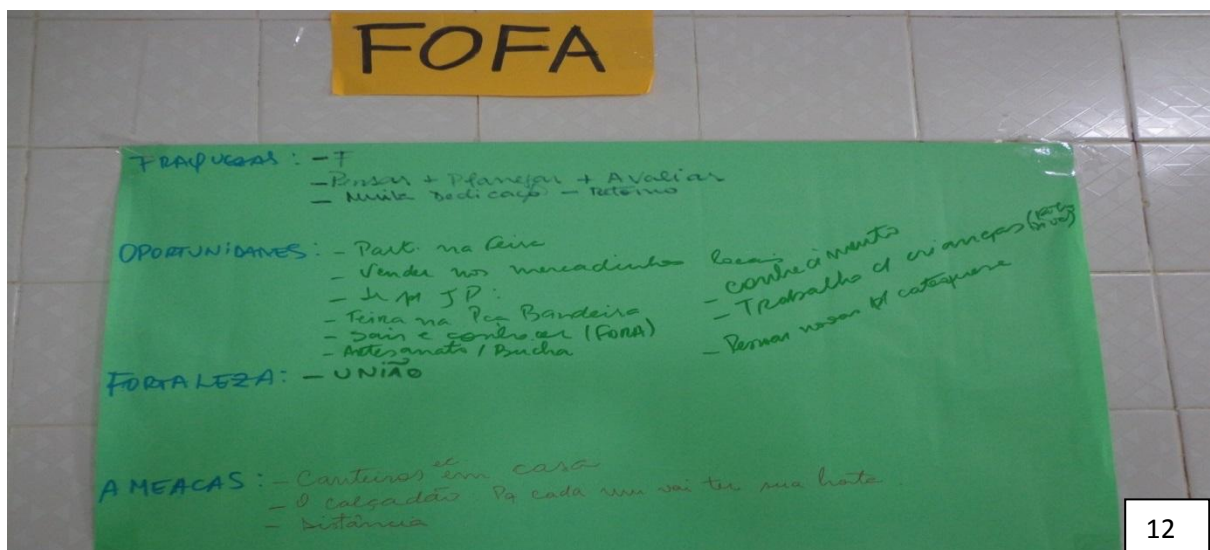 FOFA
FRAQUEZAS: - F
- Pensar + Planejar + Avaliar
- Muita Dedicaçõ - Retorno
OPORTUNIDADES: - Part. na feira
- Vender nos mercadinhos locais
- Ir p/ JP.
- Feira na Pça Bandeira
- Sair e conhecer (FORA)
- Artesanato / Bucha
- conhecimento
- TRabalho c/ crianças
- Pessoas novas p/ catequese
FORTALEZA: - UNIÃO
AMEACAS: - Canteiros em casa
- O calçadão. Pq cada um vai ter sua horta.
- Distância
12